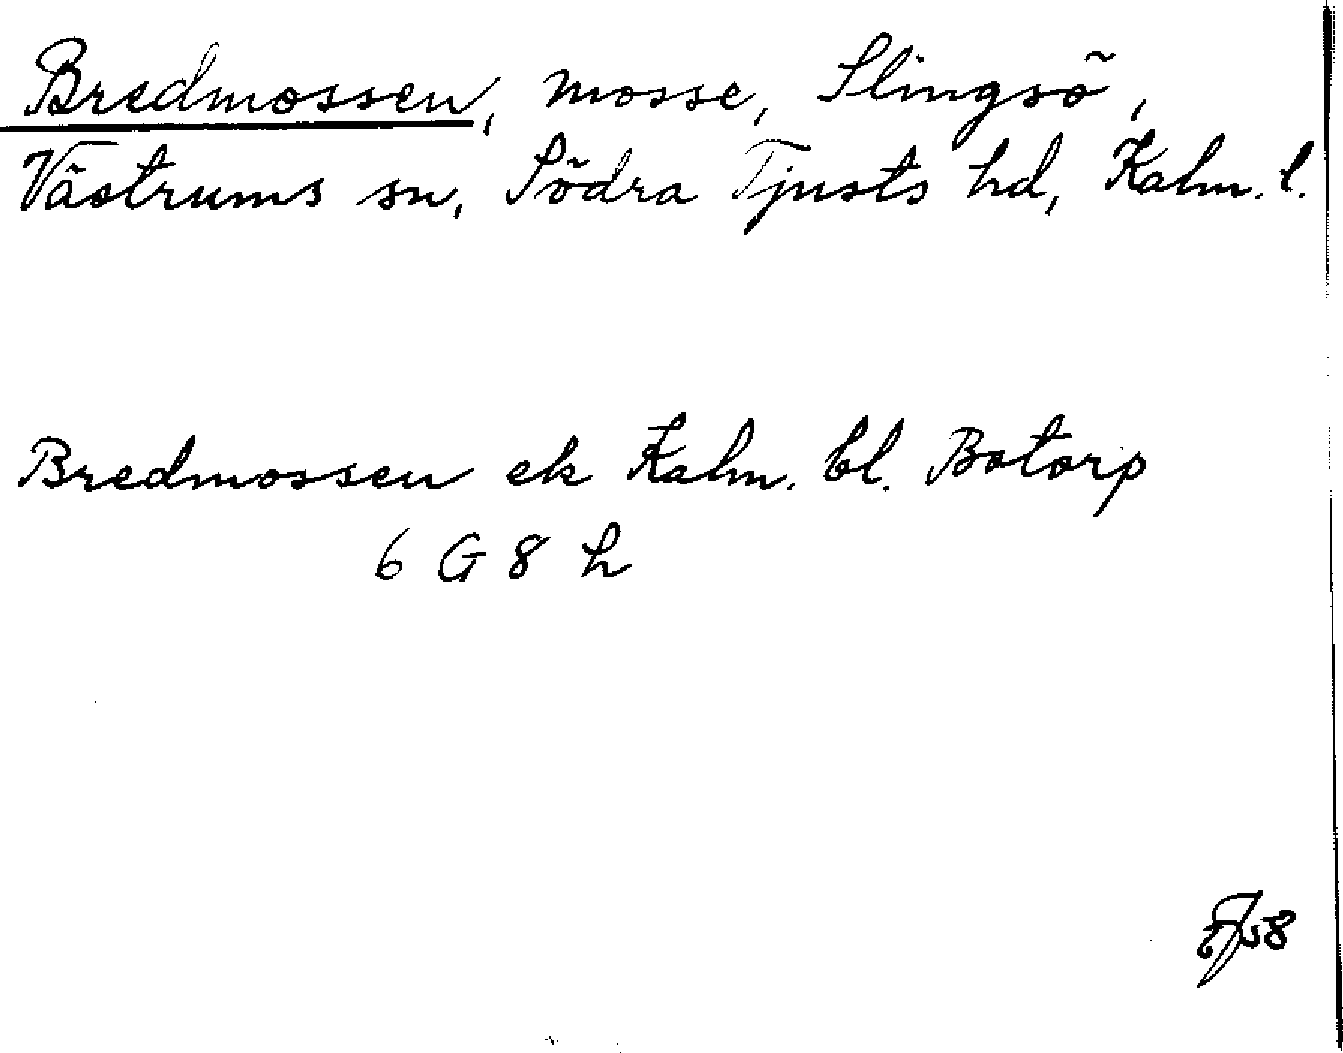 Bredmossen, mosse, Slingsö,
Västrums sn, Södra Tjusts hd, Kalm. l.
Bredmossen ek Kalm. bl. Botorp
6 G 8 h
58